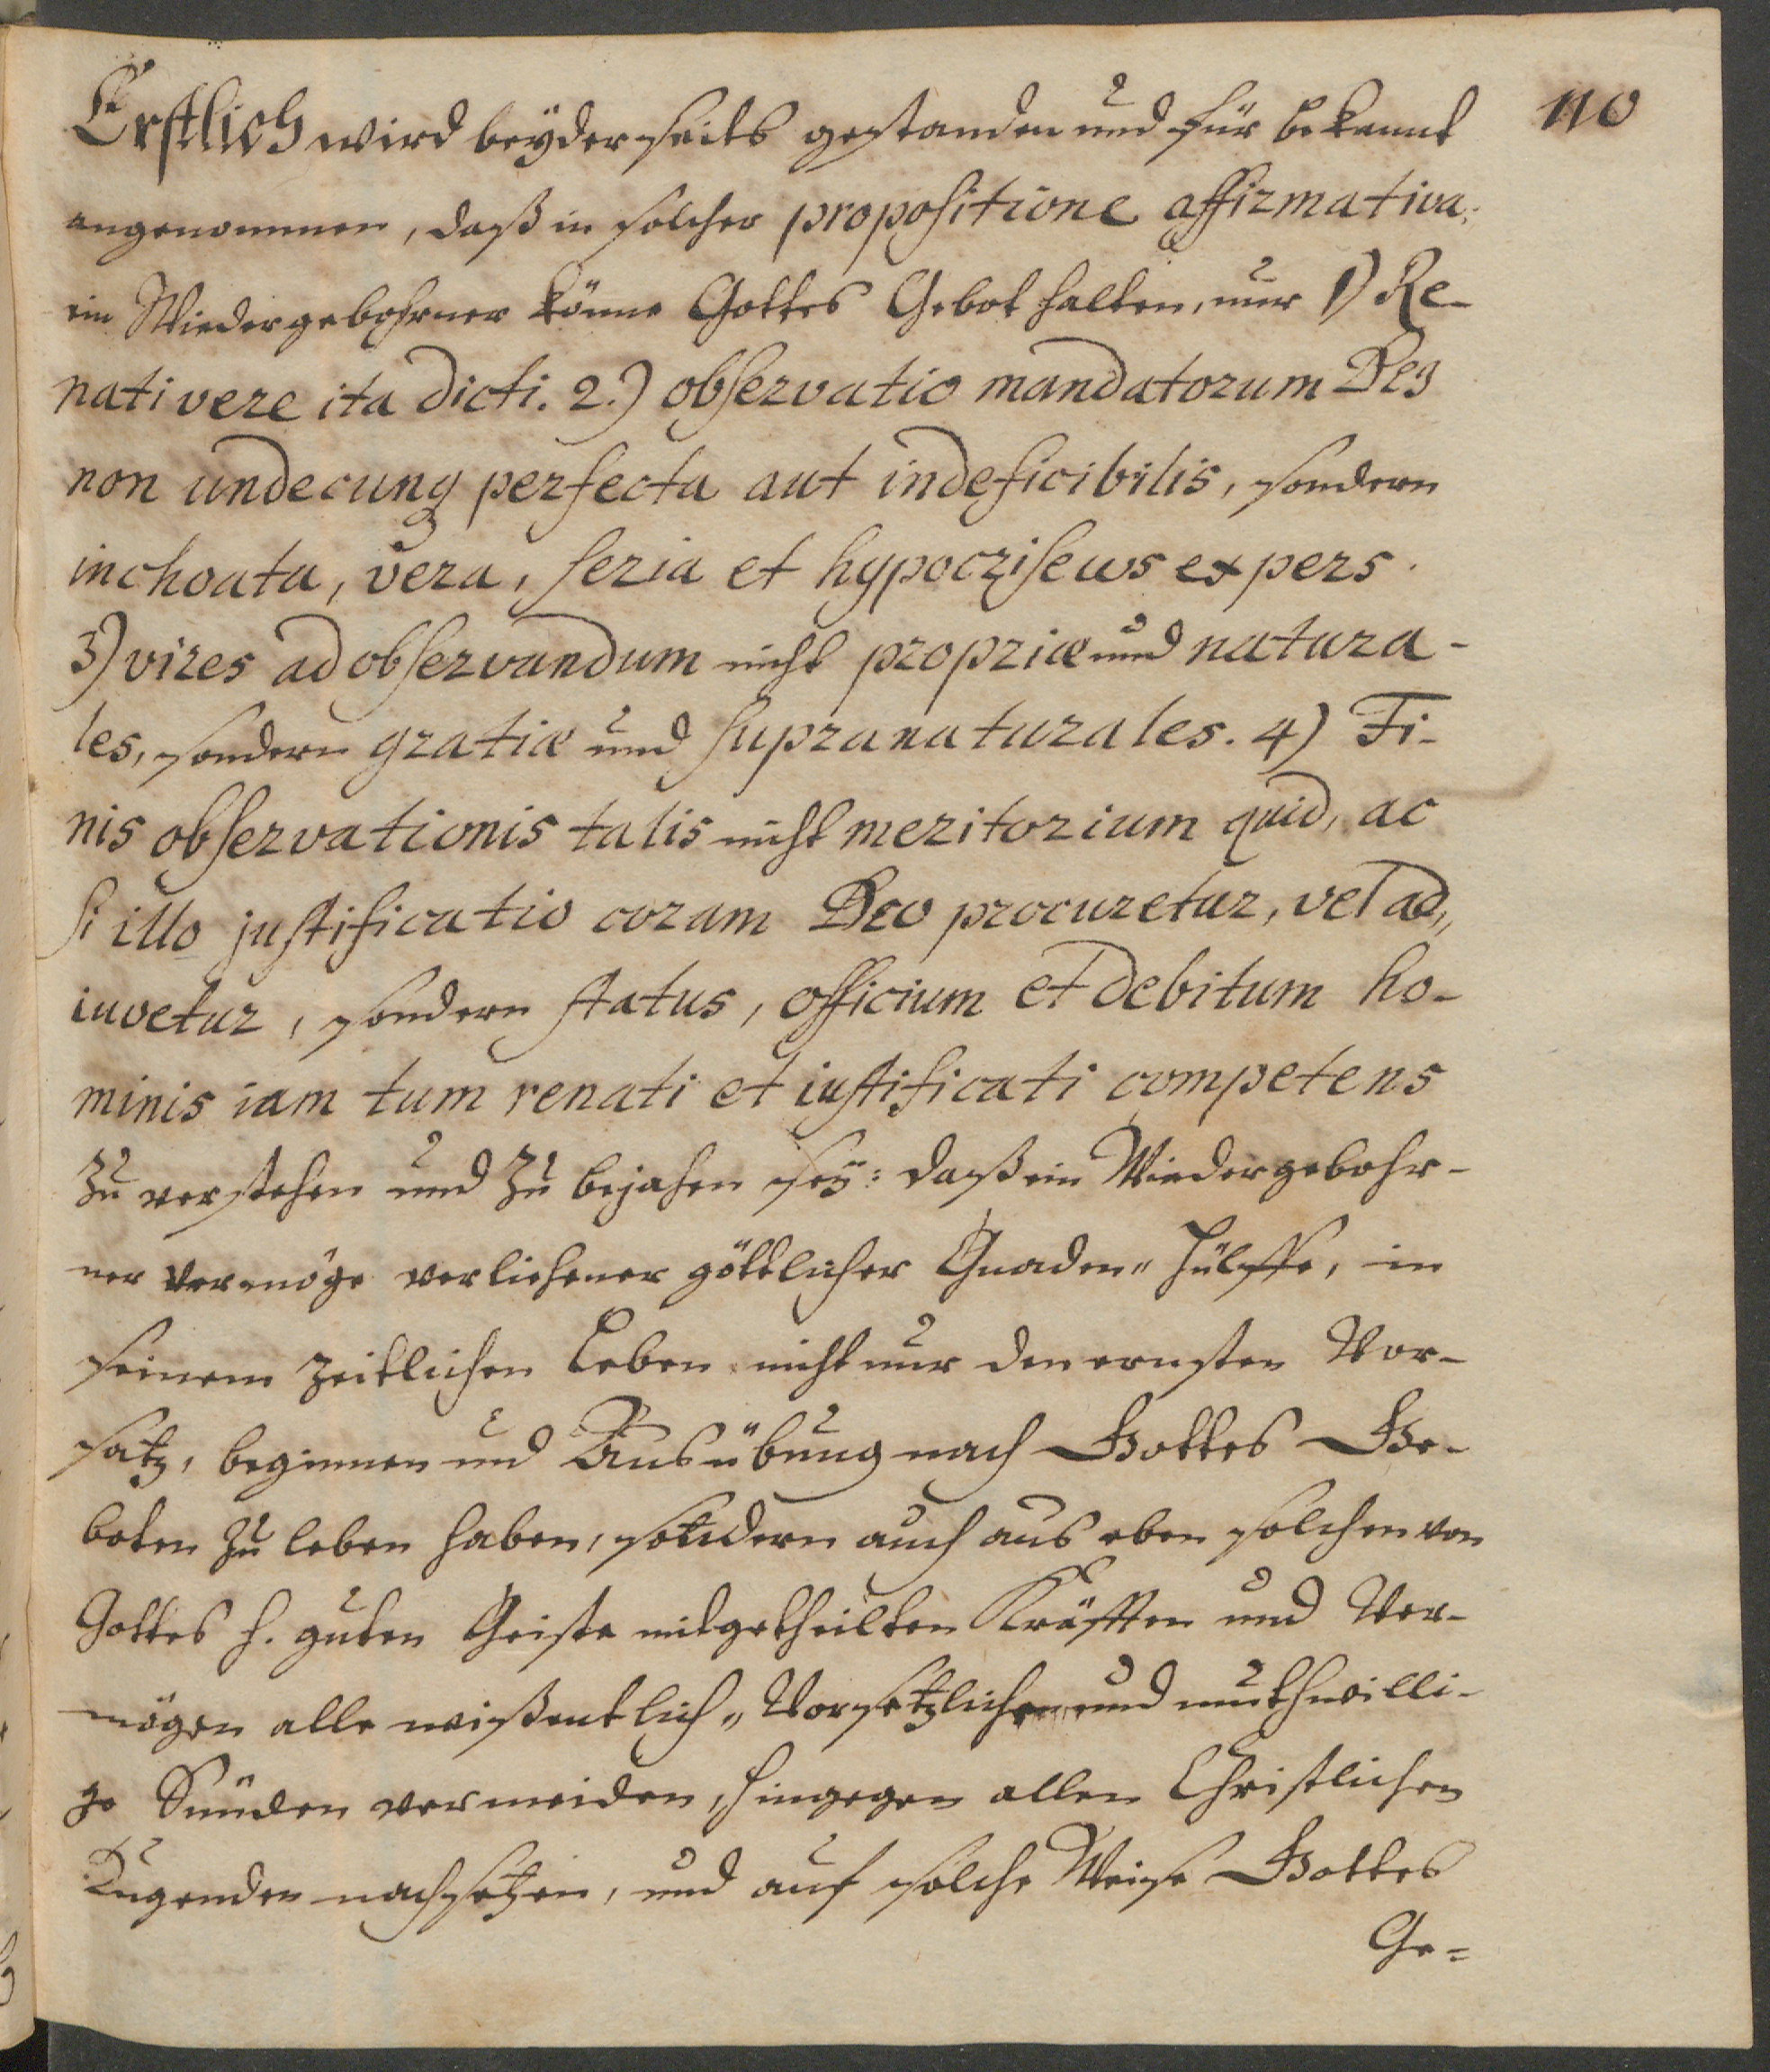 110
Erstlich wird beyderseits gestanden und für bekannt
angenommen, daß in solcher propositione affirmativa:
ein Wiedergebohrner könne Gottes Gebot halten, nur 1) Re-
nati vere ita dicti. 2.) observatio mandatorum Dej
non undecunq perfecta aut indeficibilis, sondern
inchoata, vera, seria et hypocrisews expers.
3) vires ad observandum nicht propriæ und natura-
les, sondern gratiæ und supranaturales. 4) Fi-
nis observationis talis nicht meritorium quid, ac
si illo justificatio coram Deo procuretur, vel ad„
iuvetur, sondern status, officium et debitum ho-
minis iam tum renati et iustificati competens
zu verstehen und zu bejahen sey: daß ein Wiedergebohr-
ner vermöge verliehener göttlicher Gnaden„ hülffe, in
seinem zeitlichen Leben nicht nur den ernsten Vor-
satz, beginnen und Ausübung nach Gottes Ge-
boten zu leben haben, sondern auch aus eben solchen von
Gottes h. guten Geiste mitgetheilten Kräfften und Ver-
mögen alle wißentlich„ Vorsetzlichen und muthwilli-
ge Sünden vermeiden, hingegen allen Christlichen
Tugenden nachsetzen, und auf solche Weise Gottes
Ge=